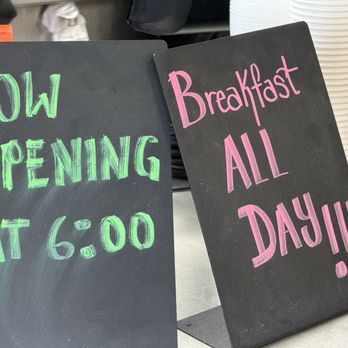 OW
PENING
AT 6:00
Breakfast
ALL
DAY!!!